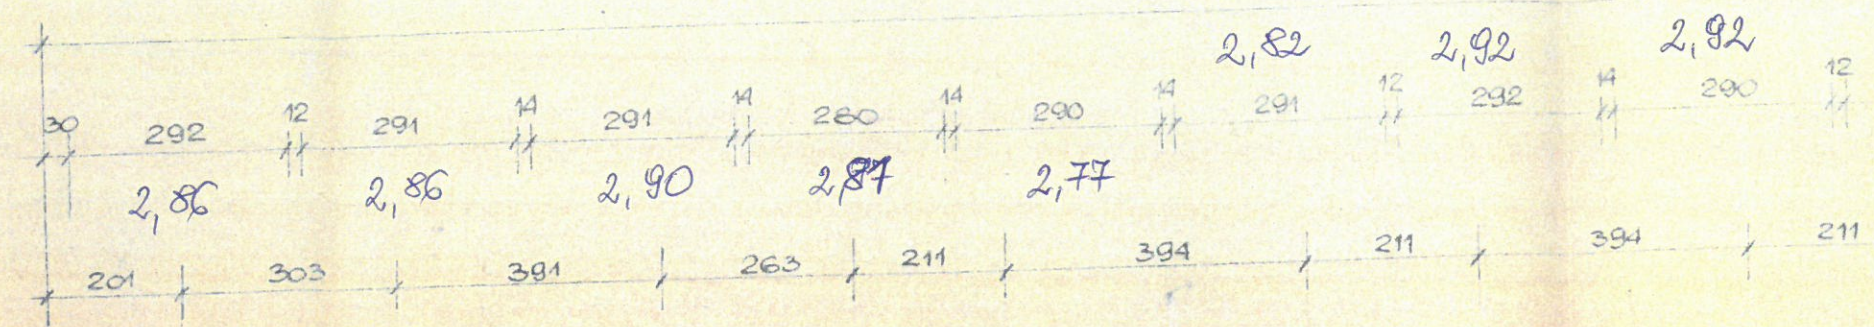 2,82 2,92 2,92
30 292 12 291 14 291 14 280 14 290 14 291 12 292 14 290 12
2,86 2,86 2,90 2,87 2,77
201 303 391 263 211 394 211 394 211